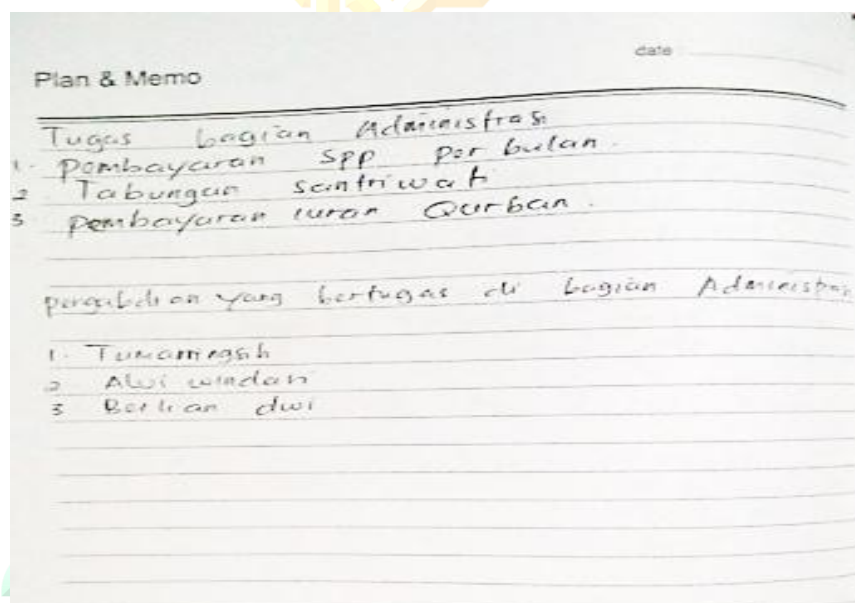 date
Plan & Memo
Tugas bagian Administrasi
1. Pembayaran SPP per bulan.
2 Tabungan santriwati
3 Pembayaran iuran Qurban.
pengabdian yang bertugas di bagian Administrasi
1. Tumaningsih
2 Alvi wundari
3 Berlian dwi